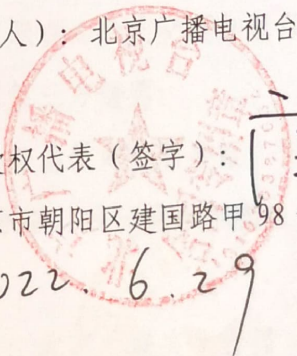 人）：北京广播电视台
权代表（签字）：
市朝阳区建国路甲98
022.6.29